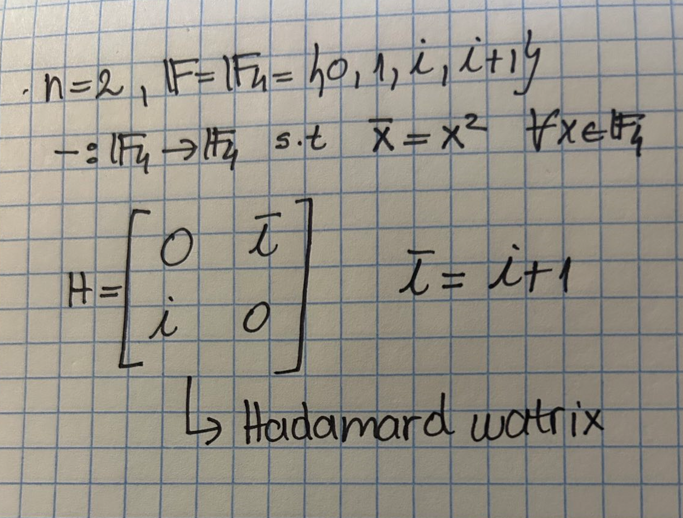 . n=2, 𝔽=𝔽₄={0, 1, i, i+1}
–: 𝔽₄ → 𝔽₄ s.t x̄ = x² ∀x∈𝔽₄
H = [ 0 ī
i 0 ] ī = i+1
↳ Hadamard watrix